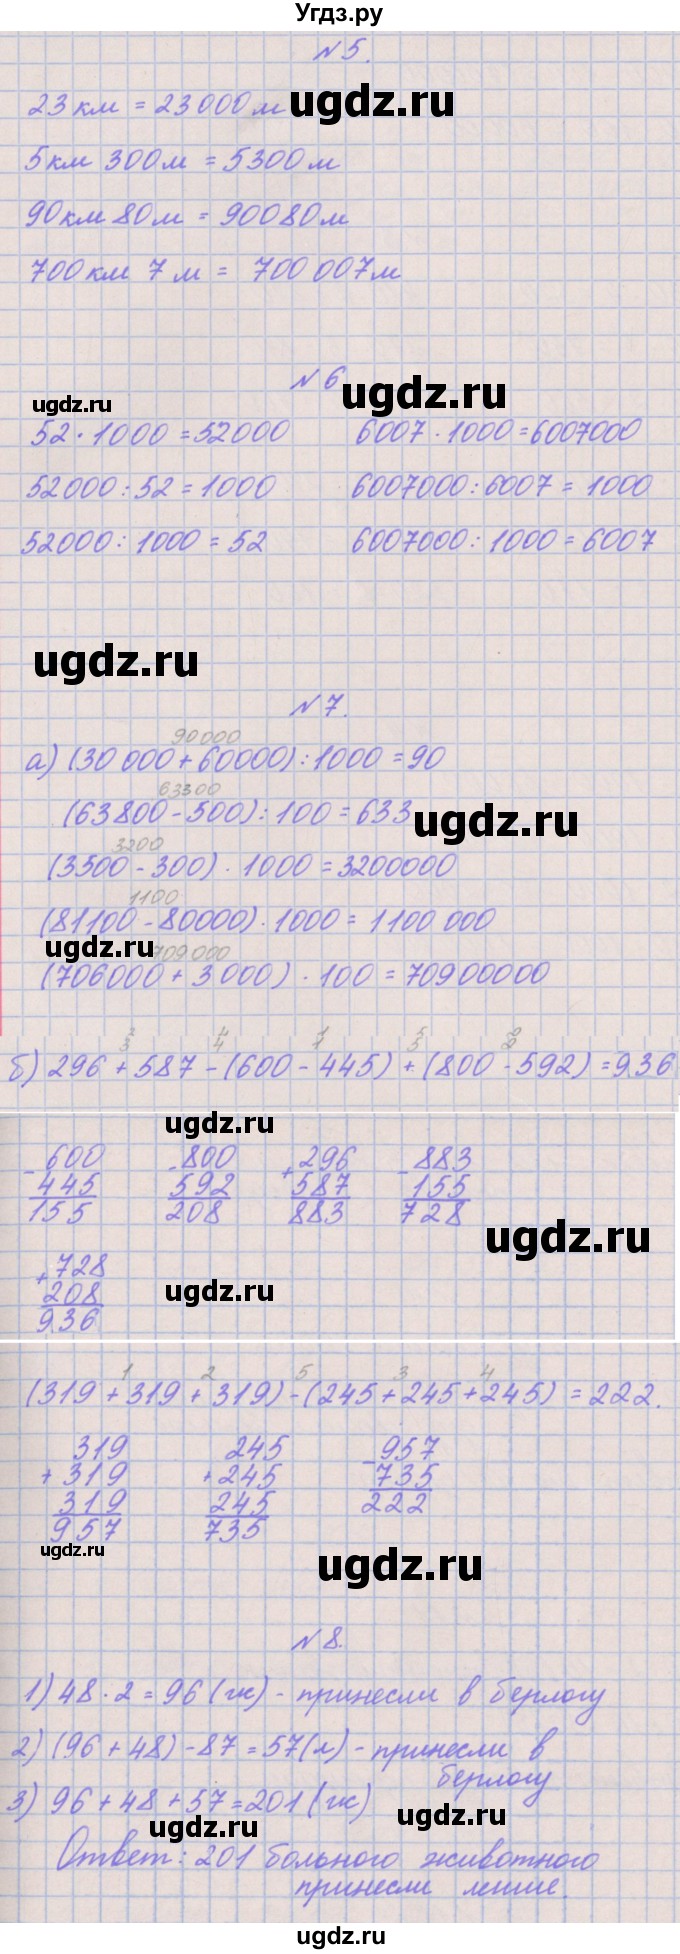 Угдз.ру
№5.
23 км = 23000 м
ugdz.ru
5км 300м = 5300м
90км 80м = 90080м
700км 7 м = 700 007м
№6
ugdz.ru
ugdz.ru
52 · 1000 = 52000 6007 · 1000 = 6007000
52000 : 52 = 1000 6007000 : 6007 = 1000
52000 : 1000 = 52 6007000 : 1000 = 6007
ugdz.ru
№7.
90000
а) (30 000 + 60000) : 1000 = 90
63300
(63800 - 500) : 100 = 633
ugdz.ru
3200
(3500 - 300) · 1000 = 3200000
1100
(81100 - 80000) · 1000 = 1100 000
ugdz.ru
709000
(706000 + 3000) · 100 = 70900000
3 4 1 5 2
б) 296 + 587 - (600 - 445) + (800 - 592) = 936
ugdz.ru
- 600 - 800 + 296 - 883
445 592 587 155
155 208 883 728
ugdz.ru
+ 728
208
936
ugdz.ru
1 2 5 3 4
(319 + 319 + 319) - (245 + 245 + 245) = 222.
319 245 - 957
+ 319 + 245 735
319 245 222
957 735
ugdz.ru
ugdz.ru
№8.
1) 48 · 2 = 96 (ж) - принесли в берлогу
2) (96 + 48) - 87 = 57(л) - принесли в
берлогу
3) 96 + 48 + 57 = 201 (ж)
ugdz.ru
ugdz.ru
Ответ: 201 больного животного
принесли
ugdz.ru